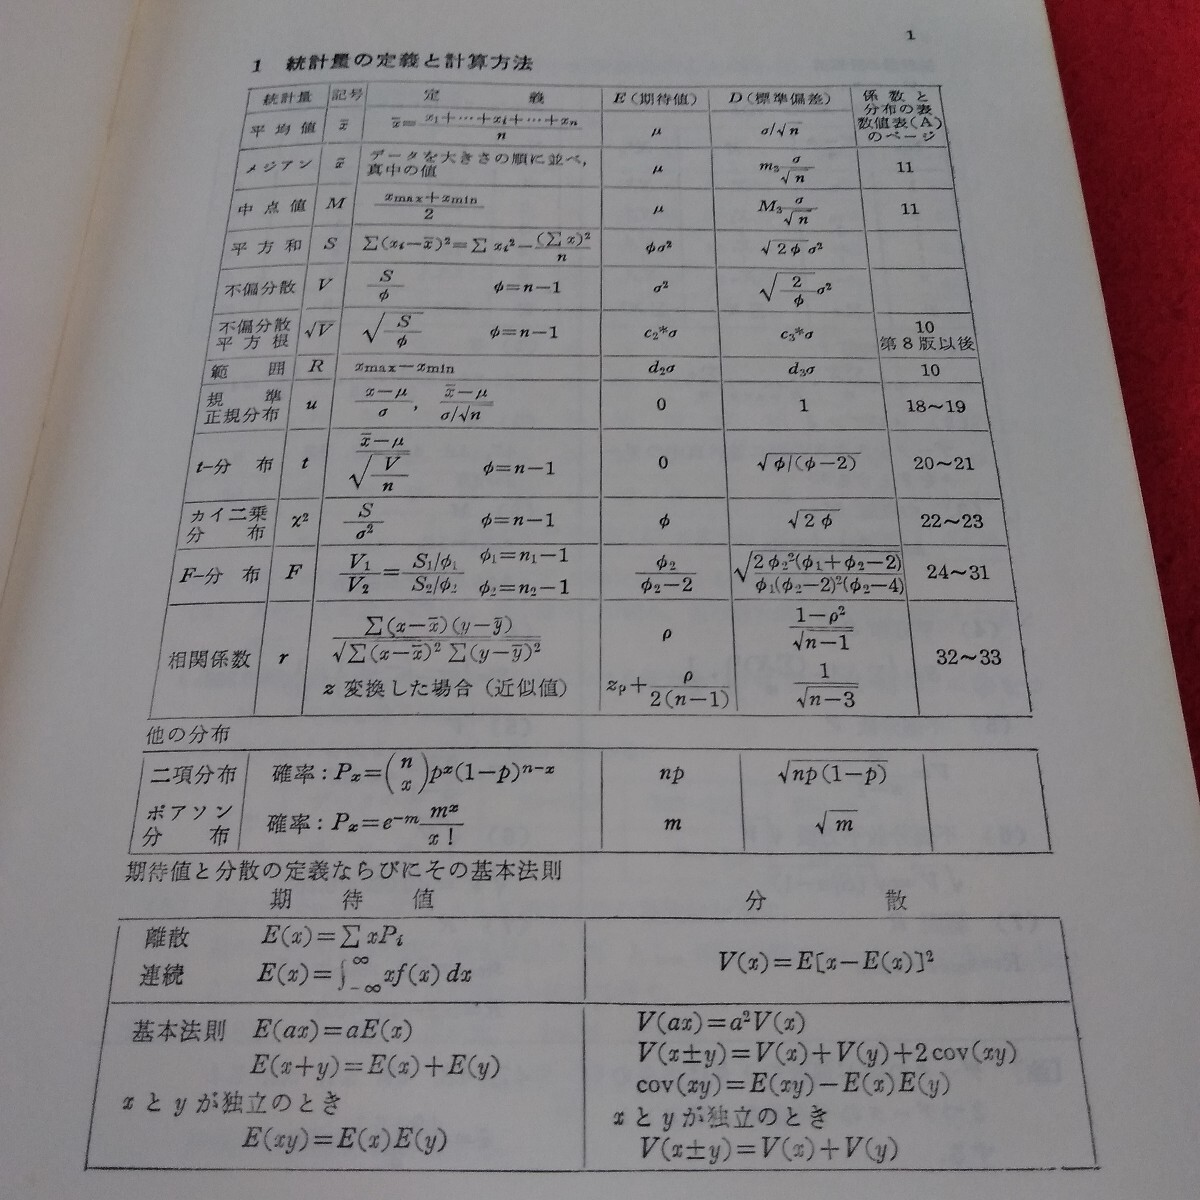 1
1 統計量の定義と計算方法
統計量 記号 定義 E(期待値) D(標準偏差) 係数と分布の表数値表(A)のページ
平均値 x̄ x̄=(x₁+…+xᵢ+…+xₙ)/n μ σ/√n
メジアン x̃ データを大きさの順に並べ,真中の値 μ m₃σ/√n 11
中点値 M (xmax+xmin)/2 μ M₃σ/√n 11
平方和 S ∑(xᵢ−x̄)²=∑xᵢ²−(∑x)²/n φσ² √(2φ)σ²
不偏分散 V S/φ φ=n−1 σ² √(2/φ)σ²
不偏分散平方根 √V √(S/φ) φ=n−1 c₂*σ c₃*σ 10 第8版以後
範囲 R xmax−xmin d₂σ d₃σ 10
規準正規分布 u (x−μ)/σ, (x̄−μ)/(σ/√n) 0 1 18~19
t-分布 t (x̄−μ)/√(V/n) φ=n−1 0 √φ/(φ−2) 20~21
カイ二乗分布 χ² S/σ² φ=n−1 φ √(2φ) 22~23
F-分布 F V₁/V₂=(S₁/φ₁)/(S₂/φ₂) φ₁=n₁−1 φ₂=n₂−1 φ₂/(φ₂−2) √(2φ₂²(φ₁+φ₂−2)/φ₁(φ₂−2)²(φ₂−4)) 24~31
相関係数 r ∑(x−x̄)(y−ȳ)/√(∑(x−x̄)²∑(y−ȳ)²) ρ (1−ρ²)/√(n−1) 32~33
z変換した場合(近似値) zρ+ρ/2(n−1) 1/√(n−3)
他の分布
二項分布 確率:Pₓ=(n x)pˣ(1−p)ⁿ⁻ˣ np √np(1−p)
ポアソン分布 確率:Pₓ=e⁻ᵐ mˣ/x! m √m
期待値と分散の定義ならびにその基本法則
期待値 分散
離散 E(x)=∑xPᵢ
連続 E(x)=∫₋∞^∞ xf(x)dx
V(x)=E[x−E(x)]²
基本法則 E(ax)=aE(x)
E(x+y)=E(x)+E(y)
xとyが独立のとき
E(xy)=E(x)E(y)
V(ax)=a²V(x)
V(x±y)=V(x)+V(y)+2cov(xy)
cov(xy)=E(xy)−E(x)E(y)
xとyが独立のとき
V(x±y)=V(x)+V(y)